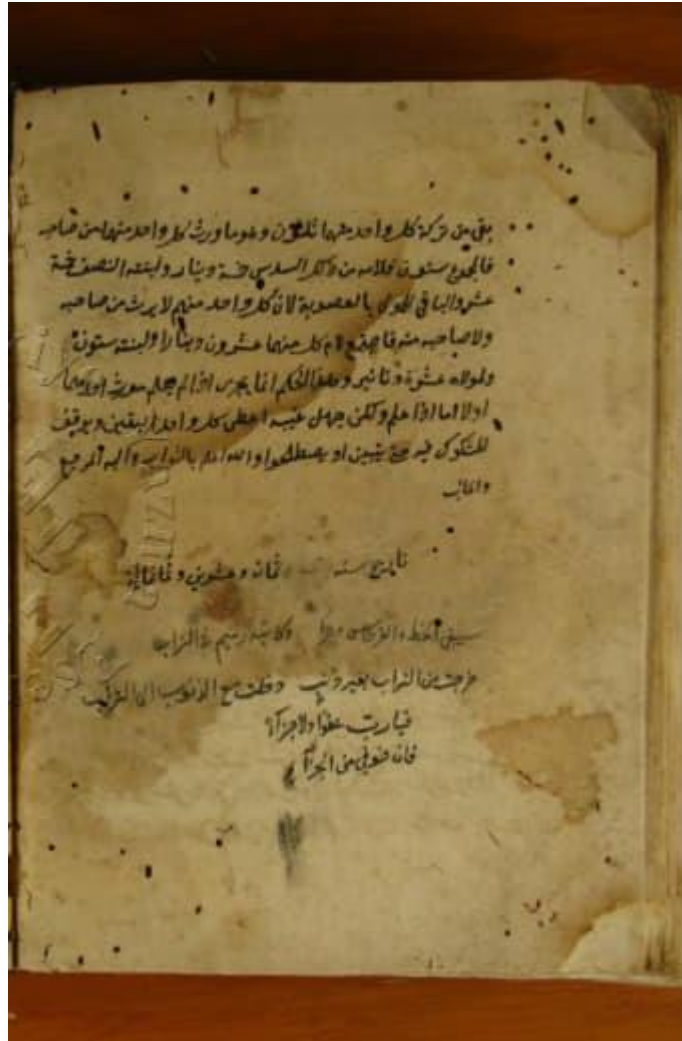 بقى من تركة كل واحد منهما ثلثون وهو ما ورث كل واحد منهما من صاحبه
فالمجموع ستون فلامه من ذلك السدس خمسة دينار ولبنته النصف خمسة
عشر والباقي للمولى بالعصوبة لان كل واحد منهم لا يرث من صاحبه
ولا صاحبه منه فاجتمع لام كل منهما عشرون دينارا ولبنته ستون
ولمولاه عشرة دنانير وهذا الحكم انما يجرى اذا لم يعلم موت ايهما
اولا اما اذا علم ولكن جهل عينه اعطى كل واحد اليقين ويوقف
المشكوك فيه حتى يتبين او يصطلحوا والله اعلم بالصواب واليه المرجع
والمآب
تاريخ سنه ثمان وعشرين وثمانمائة
سيبقى الخط والقرطاس وكاتبه رميم في التراب
خرجت من التراب بغير ذنب دخلت مع الذنوب الى التراب
فيارب عفوا ولا جزاء
فان خوفي من الجزاء